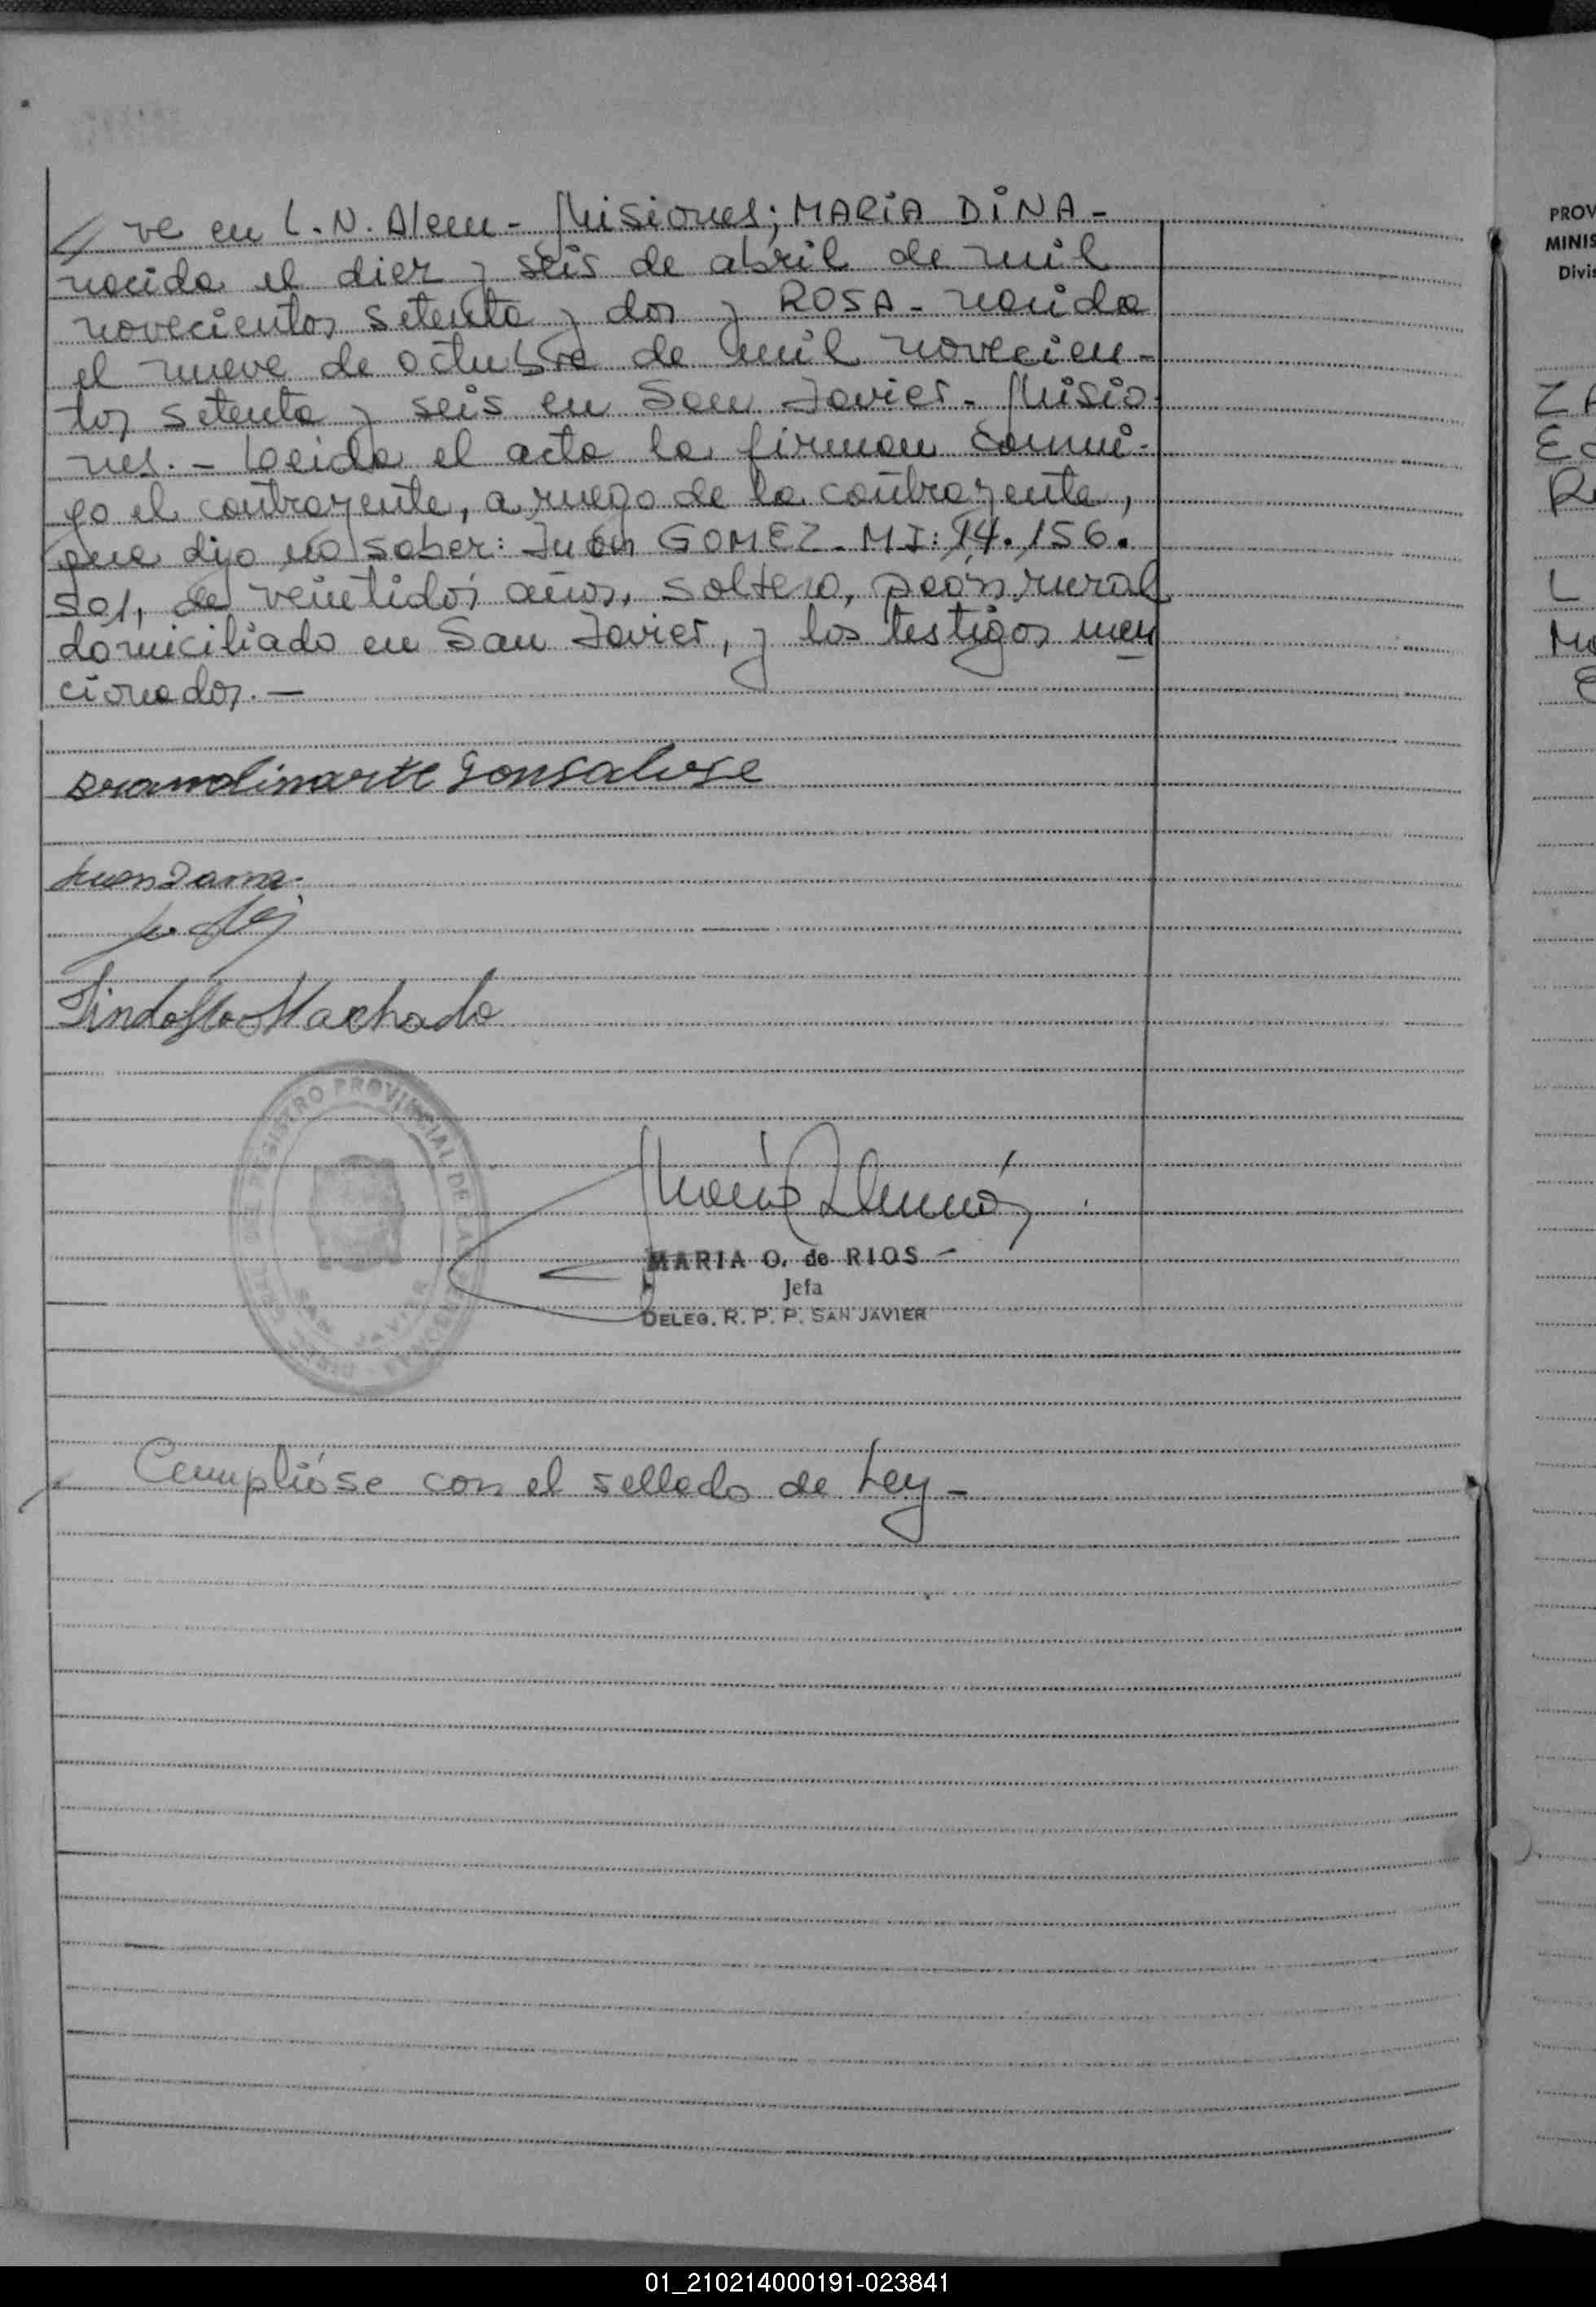 ve en L.N. Alem - Misiones; MARÍA DINA -
nacida el diez y seis de abril de mil
novecientos setenta y dos y ROSA - nacida
el nueve de octubre de mil novecien-
tos setenta y seis en San Javier - Misio-
nes. - Leida el acta la firman conmi-
go el contrayente, a ruego de la contrayente,
que dijo no saber: Juan GOMEZ - MI: 14.156.
501, de veintidós años, soltero, peón rural
domiciliado en San Javier, y los testigos men
cionados. -
Gonsalvse
Juan
Lindolfo Machado
REGISTRO PROVINCIAL DE LAS PERSONAS
SAN JAVIER
MARIA O. de RIOS -
Jefa
DELEG. R. P. P. SAN JAVIER
Cumplióse con el sellado de Ley -
PROV
MINIS
Divis
ZA
L
01_210214000191-023841